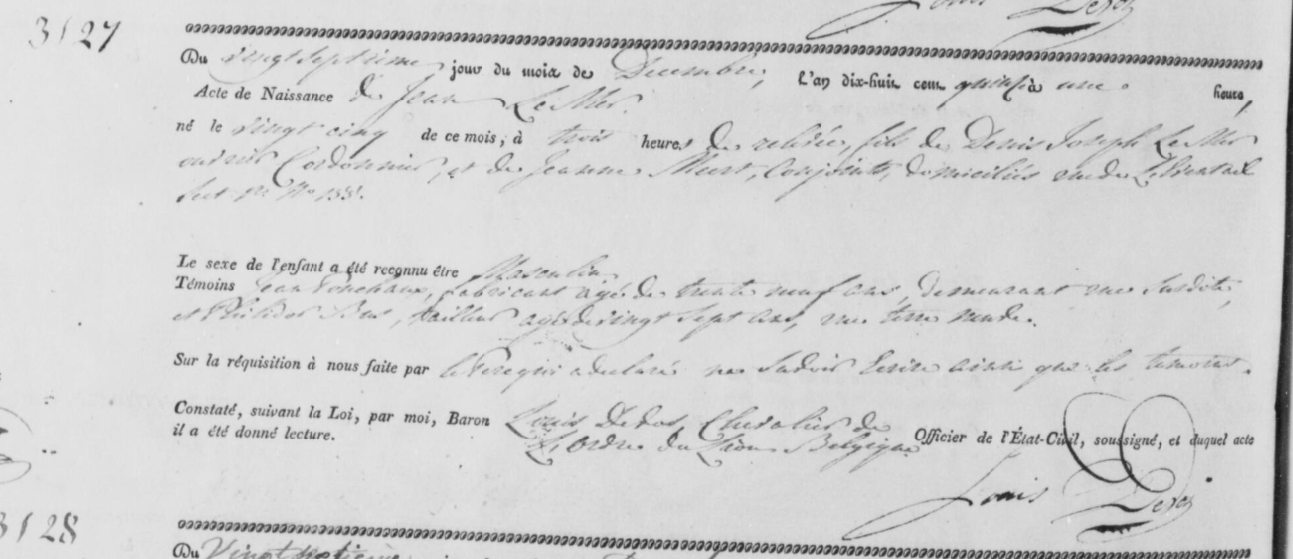 Louis Dedos
3127
Du vingt septieme jour du mois de Decembre, l'an dix-huit cent quinze à une heure,
Acte de Naissance de Jean Le Mer
né le vingt cinq de ce mois, à trois heures de relevée, fils de Denis Joseph Le Mer
ouvrier Cordonnier, et de Jeanne Meert, conjoints, domiciliés rue de
sect No 1331.
Le sexe de l'enfant a été reconnu être Masculin
Témoins Jean fabricant agé de trente neuf ans, demeurant rue Susdite,
et tailleur agé de vingt sept ans, rue terre neuve.
Sur la réquisition à nous faite par le Pere qui a declaré ne Savoir Ecrire ainsi que les temoins.
Constaté, suivant la Loi, par moi, Baron Louis Dedos, Chevalier de
L'ordre du Lion Belgique Officier de l'État-Civil, soussigné, et duquel acte
il a été donné lecture.
Louis Dedos
3128
Du Vingt septième